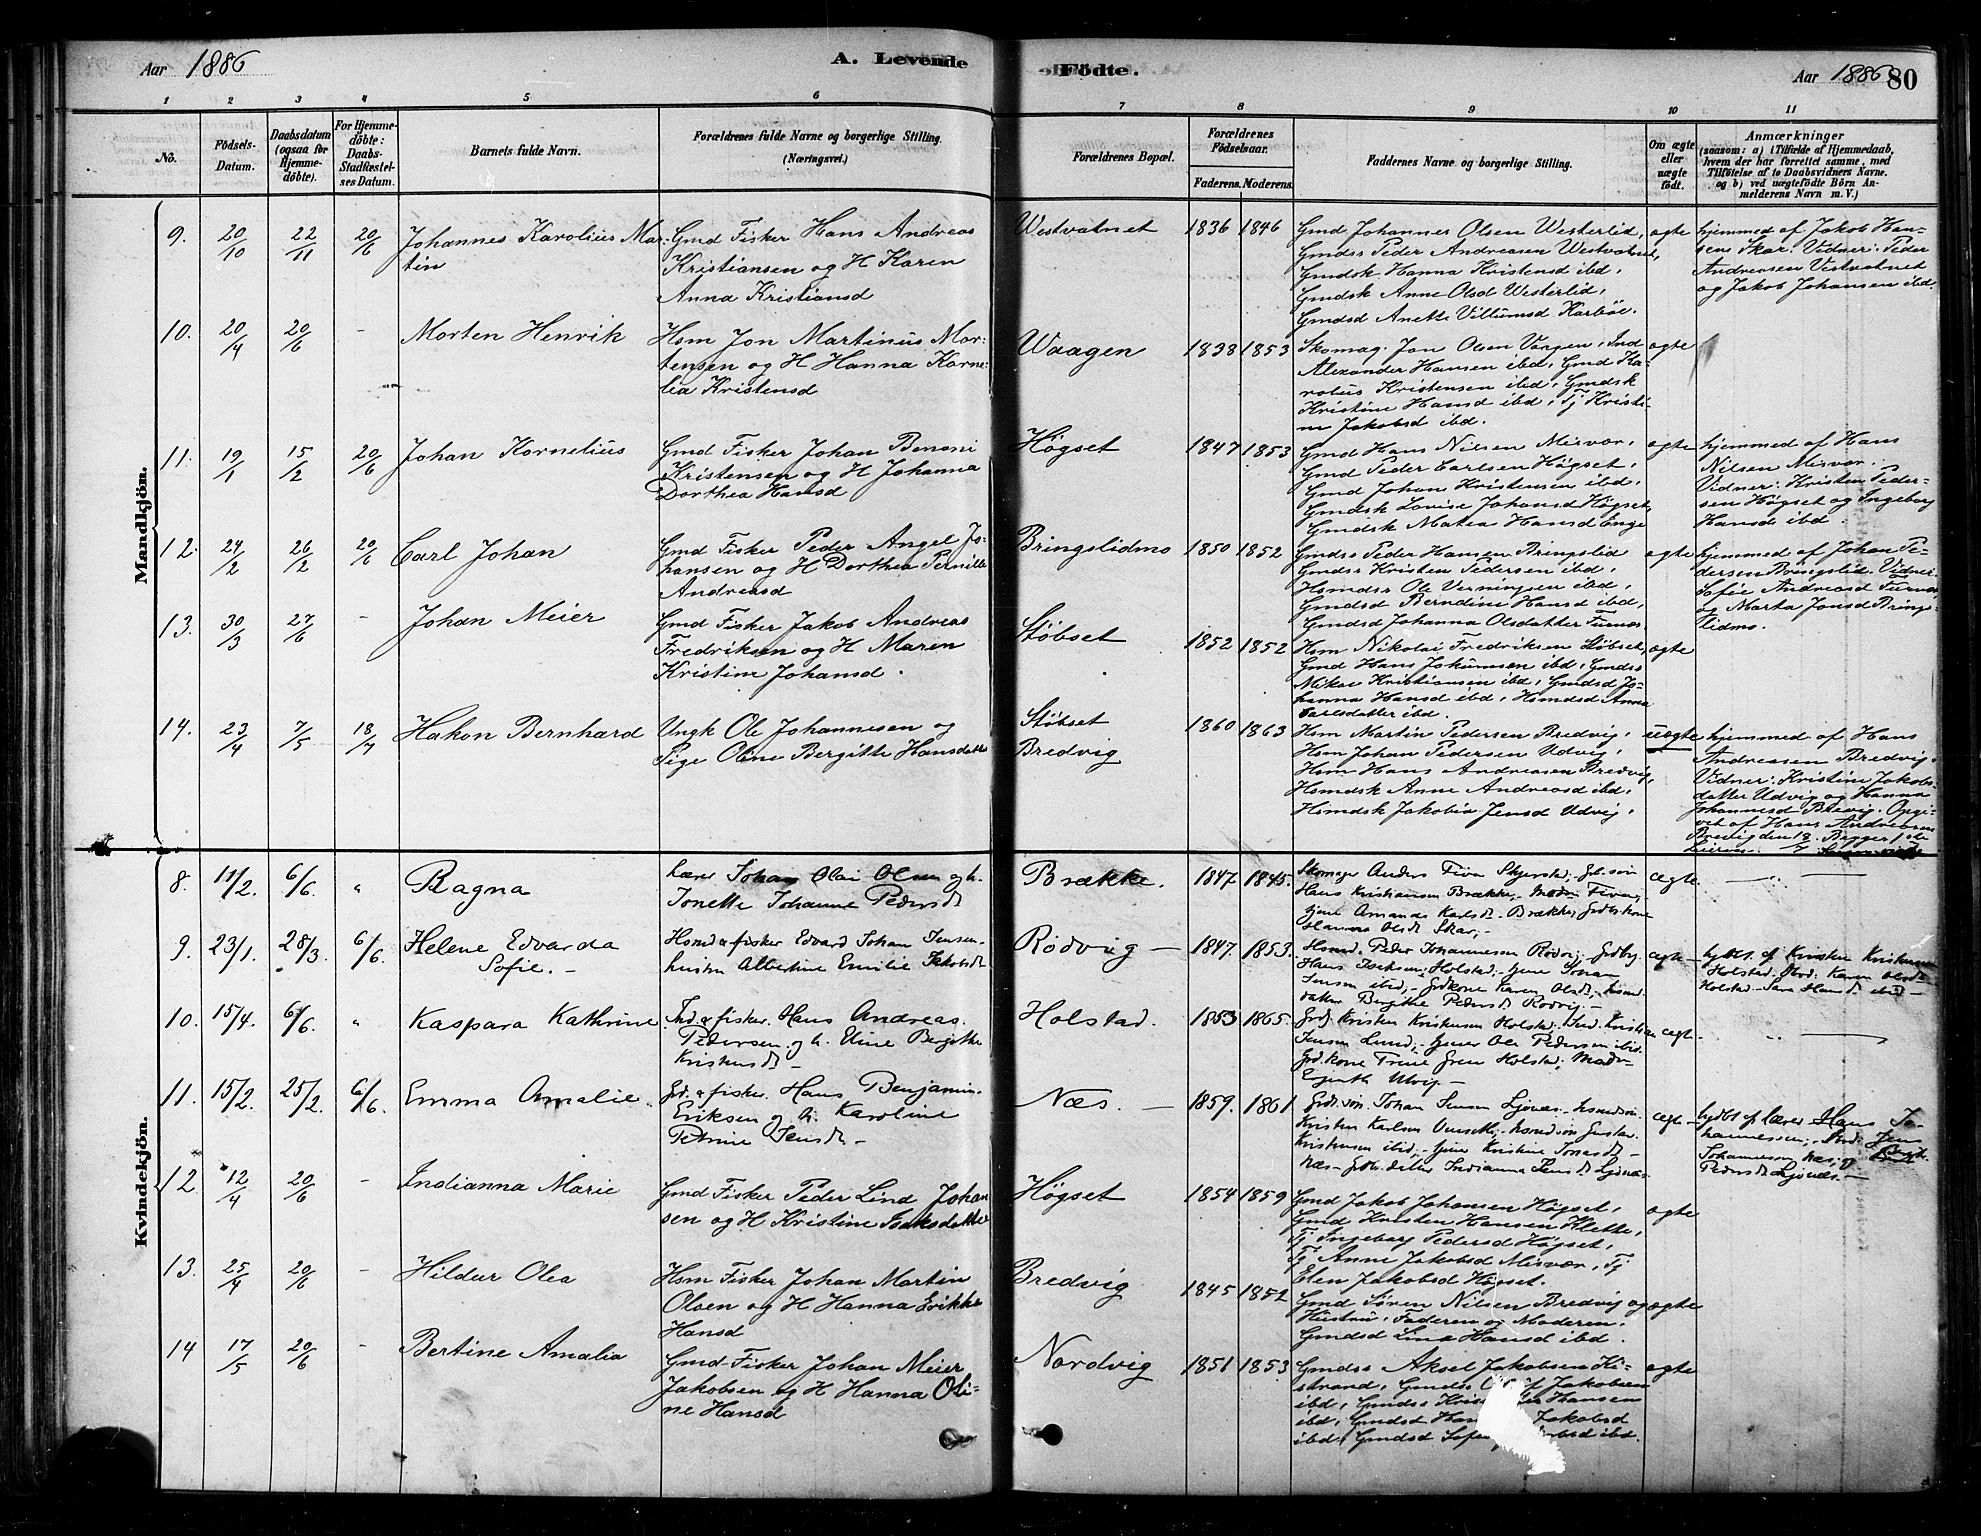 Aar 1886
A. Levende
Födte.
Aar 1886
80
1 2 3 4 5 6 7 8 9 10 11
No.
Födsels-Datum.
Daabsdatum (ogsaa for Hjemme-döbte).
For Hjemme-döbte: Daabs-Stadfæstel-ses Datum.
Barnets fulde Navn.
Forældrenes fulde Navne og borgerlige Stilling.
(Næringsvei.)
Forældrenes Bopæl.
Forældrenes Födselsaar.
Faderens. Moderens.
Faddernes Navne og borgerlige Stilling.
Om ægte eller uægte födt.
Anmærkninger
(saasom: a) i Tilfælde af Hjemmedaab,
hvem der har forrettet samme, med
Tilföielse af to Daabsvidners Navne.
og b) ved uægtefödte Börn An-
melderens Navn m.V.)
Mandkjön.
9. 20/10 22/11 20/6 Johannes Karolius Mar-
tin
Gmd Fisker Hans Andreas
Kristiansen og H Karen
Anna Kristiansd
Westvatnet 1836 1846
Gmd Johannes Olsen Westerlid,
Gmdss Peder Andreasen Westvatnet,
Gmdsk Hanna Kristensd ibd,
Gmdsk Anne Olsd Westerlid,
Gmdsd Anette Villumsd Karbøe.
ægte
hjemmed af Jakob Han-
sen Skar. Vidner: Peder
Andreasen Vestvatnet
og Jakob Johansen ibd.
10. 20/4 20/6 - Morten Henrik
Hsm Jon Martinus Mor-
tensen og H Hanna Korne-
lia Kristensd
Waagen 1838 1853
Skomag. Jon Olsen Vaagen, Ind
Alexander Hansen ibd, Gmd Ka-
rolius Kristensen ibd, Gmdsk
Kristine Hansd ibd, Tj Kristi-
ne Jakobsd ibd.
ægte
11. 19/1 15/2 20/6 Johan Kornelius
Gmd Fisker Johan Benoni
Kristensen og H Johanna
Dorthea Hansd
Högset 1847 1853
Gmd Hans Nilsen Misvær,
Gmd Peder Carlsen Högset,
Gmd Johan Kristensen ibd,
Gmdsk Lovise Johansd Högset,
Gmdsk Matea Hansd Enge
ægte
hjemmed af Hans
Nilsen Misvær.
Vidner: Kristen Peder-
sen Högset og Ingeborg
Hansd ibd.
12. 24/2 26/2 20/6 Carl Johan
Gmd Fisker Peder Angel Jo-
hansen og H Dorthea Pernille
Andreasd
Bringslidmo 1850 1852
Gmdss Peder Hansen Bringslid
Gmdss Kristen Pedersen ibd,
Hsmdss Ole Verningsen ibd,
Gmdsd Berndine Hansd ibd,
Gmdsd Johanna Olsdatter Furnes
ægte
hjemmed af Johan Pe-
dersen Bringslid. Vidner:
Sofie Andreasd Furnes
og Marta Jonsd Brings-
lidmo.
13. 30/3 27/6 - Johan Meier
Gmd Fisker Jakob Andreas
Fredriksen og H Maren
Kristine Johansd.
Støbset 1852 1852
Hsm Nikolai Fredriksen Støbset,
Gmd Hans Jokumsen ibd, Gmdss
Mikal Kristiansen ibd, Gmdsd Jo-
hanna Hansd ibd, Hsmdsd Anna
Carlsdatter ibd.
ægte
14. 23/4 7/5 18/7 Hakon Bernhard
Ungk Ole Johannesen og
Pige Oline Bergitte Hansdatter
Støbset
Bredvig
1860 1863
Hsm Martin Pedersen Bredvig,
Hsm Johan Pedersen Udvig,
Hsm Hans Andreasen Bredvig,
Hsmdsk Anne Andreasd ibd,
Hsmdsk Jakobia Jensd Udvig,
uægte
hjemmed af Hans
Andreasen Bredvig.
Vidner: Kristine Jakobs-
datter Udvig og Hanna
Johannesd Brevig. Opgi-
vet af Hans Andreasen
Brevig den
Kvindekjön.
8. 11/2. 6/6. " Ragna
Lærer Johan Olai Olsen og h.
Jonette Johanne Pedersdt
Brække. 1847. 1845.
Skomager Anders Skjerstad,
Hans Kristiansen Brække,
tjene Amanda Karlsdt Brække,
Hanna Olsdt Skar,
ægte.
9. 23/1. 28/3. 6/6. Helene Edvarda
Sofie. -
Hsmd & fisker Edvard Johan Jensen
hustru Albertine Emilie Jakobsdt
Rødvig - 1847. 1853.
Hsmd. Peder Johannessen Rødvig,
Hans Holstad,
Jensen ibid, Karen Olsdt,
datter Bergithe Pedersdt Rødvig. -
ægte -
Kristen Kristensen
Holstad. Karen Olsdt
Holstad - Sara Hansdt ibid -
10. 15/4. 6/6. " Kaspara Kathrine
Ind. & fisker. Hans Andreas
Pedersen og h. Eline Bergitte
Kristensdt.
Holstad. 1853 1865.
Kristen Kristensen Holstad,
Jensen Lund, Ole Pedersen ibid.
Trine Holstad,
Utvig -
ægte.
11. 15/2. 25/2. 6/6. Emma Amalie.
Grd. & fisker. Hans Benjamin
Eriksen og h. Karoline
Petrine Jensdt -
Næs. - 1859. 1861
Johan Jensen Ljønæs
Kristen Karlsen
Kristensen ibid, Kristine Jonasdt -
Næs - datter Indianna Jensdt Ljønæs
ægte -
af lærer Hans Jo-
hannessen, Jens
Johannessen Næs, og
Pedersdt Ljønæs. -
12. 12/4 20/6 - Indianna Marie
Gmd Fisker Peder Lind Johan
sen og H Kristine Isaksdatter
Högset 1854 1859
Gmd Jakob Johansen Högset,
Gmd Kristen Hansen Klette,
Tj Ingeborg Pedersd Högset,
Tj Anne Jakobsd Misvær, Tj
Elen Jakobsd Högset.
ægte
13. 25/4 20/6 - Hildur Olea
Hsm Fisker Johan Martin
Olsen og H Hanna Erikke
Hansd
Bredvig 1845 1852
Gmd Søren Nilsen Bredvig og
Hustru, Faderen og Moderen,
Gmdsd Lina Hansd ibd.
ægte
14 17/5 20/6 - Bertine Amalia
Gmd Fisker Johan Meier
Jakobsen og H Hanna Oli-
ne Hansd
Nordvig 1851 1853
Gmdss Aksel Jakobsen Ki-
strand, Gmdss Jakobsen
ibd, Gmdss Hansen
ibd, Gmdsd Jakobsd
ibd, Gmdsd ibd.
ægte